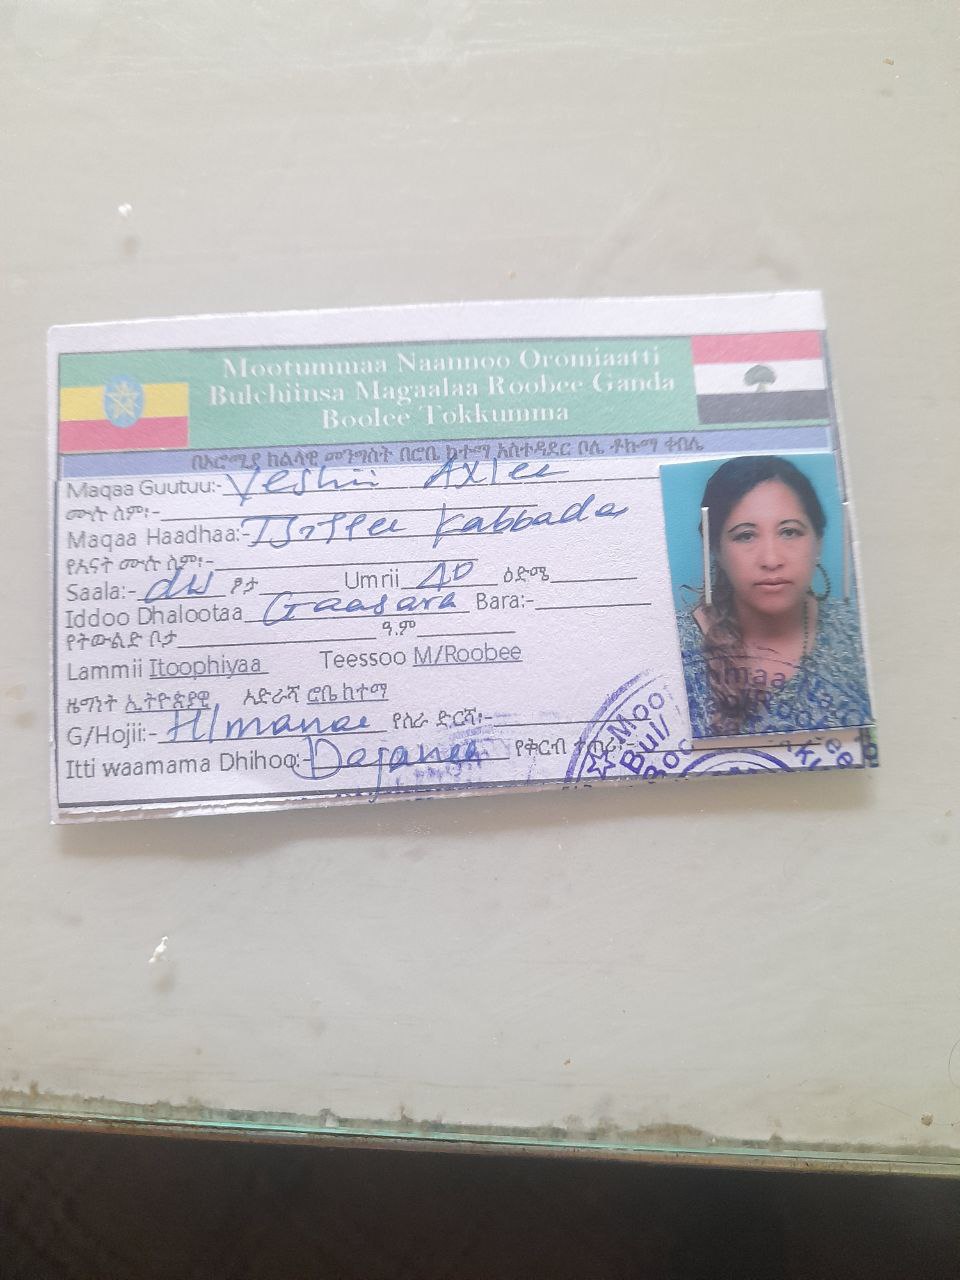 Mootummaa Naannoo Oromiaatti
Bulchiinsa Magaalaa Roobee Ganda
Boolee Tokkumma
በኦሮሚያ ክልላዊ መንግስት በሮቤ ከተማ አስተዳደር ቦሌ ቶኩማ ቀበሌ
Maqaa Guutuu:- Yeshii
ሙሉ ስም፡-
Maqaa Haadhaa:- Kabbada
የእናት ሙሉ ስም፡-
Saala:- du ፆታ Umrii 40 ዕድሜ
Iddoo Dhalootaa Gaasara Bara:-
የትውልድ ቦታ ዓ.ም
Lammii Itoophiyaa Teessoo M/Roobee
ዜግነት ኢትዮጵያዊ አድራሻ ሮቤ ከተማ
G/Hojii:- H/manaa የስራ ድርሻ፡-
Itti waamama Dhihoo:- Daganee የቅርብ ተጠሪ፡-
Moo
Bul/